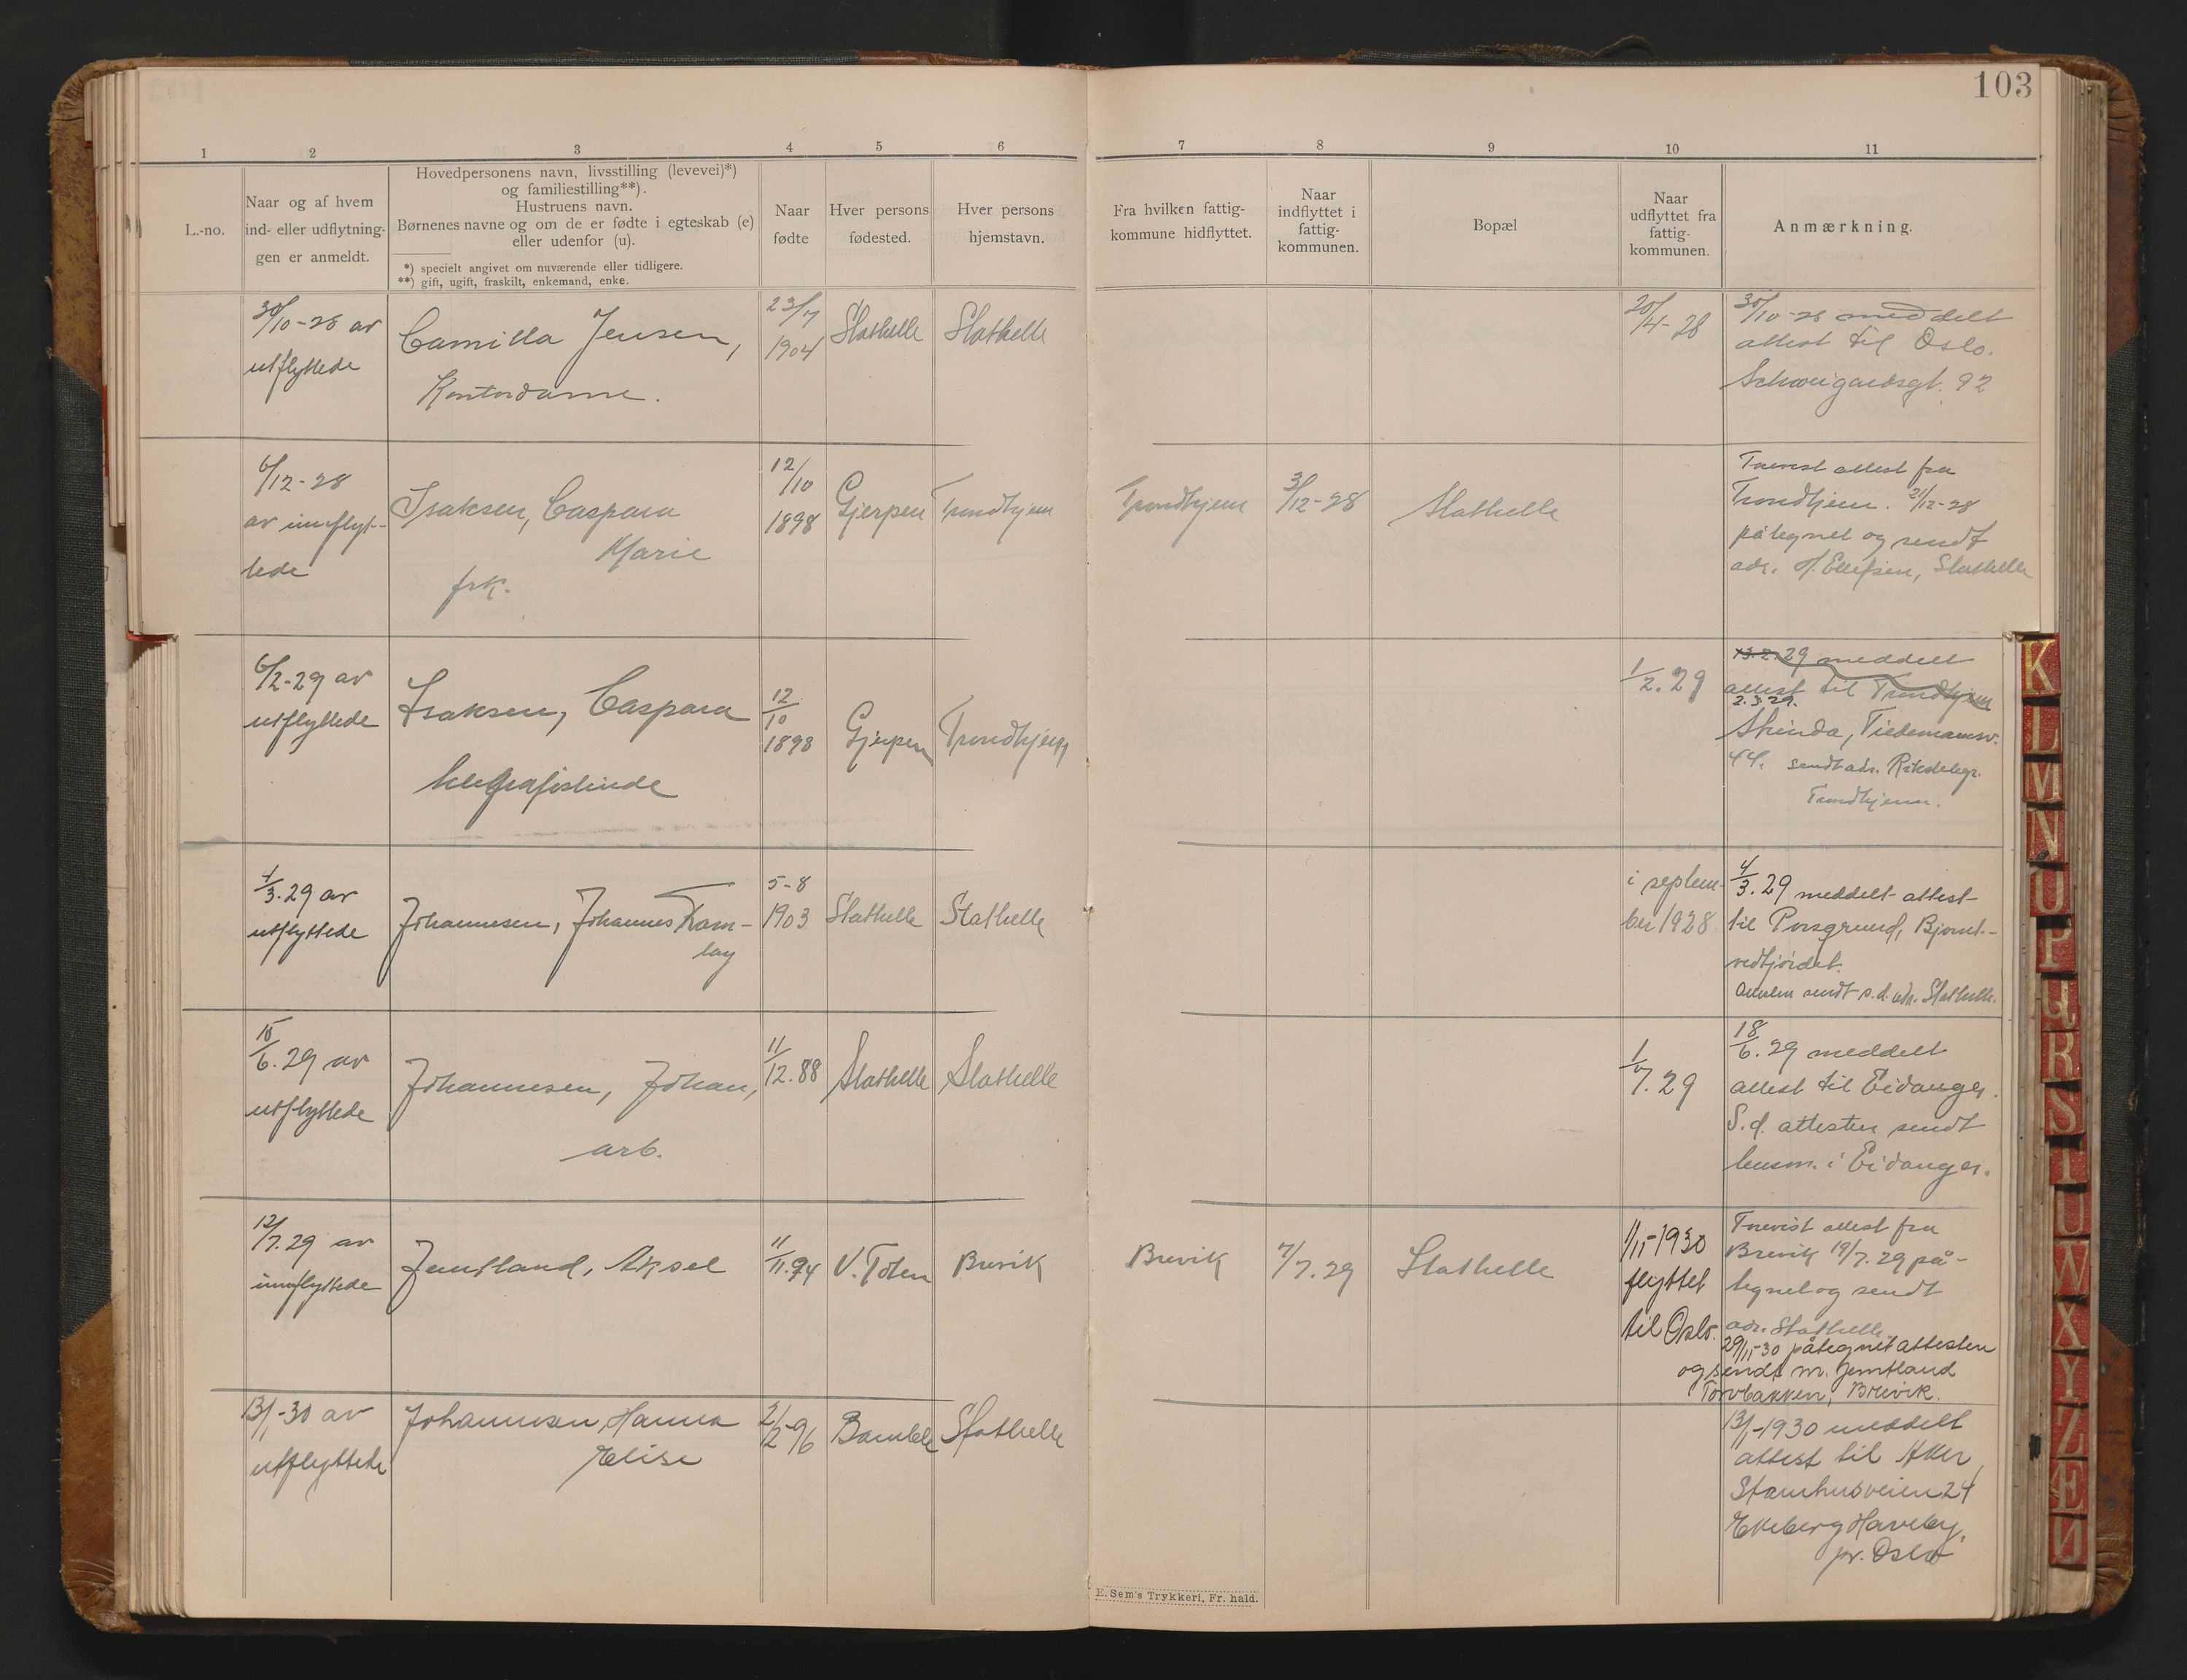 103
1 2 3 4 5 6 7 8 9 10 11
L.-no.
Naar og af hvem
ind- eller udflytnin-
gen er anmeldt.
Hovedpersonens navn, livsstilling (levevei)*)
og familiestilling**).
Hustruens navn.
Børnenes navne og om de er fødte i egteskab (e)
eller udenfor (u).
*) specielt angivet om nuværende eller tidligere.
**) gift, ugift, fraskilt, enkemand, enke.
Naar
fødte
Hver persons
fødested.
Hver persons
hjemstavn.
Fra hvilken fattig-
kommune hidflyttet.
Naar
indflyttet i
fattig-
kommunen.
Bopæl
Naar
udflyttet fra
fattig-
kommunen.
Anmærkning.
30/10-28 av
utflyttede
Camilla Jensen,
Kontordame.
23/7
1904
Stathelle
Stathelle
20/4-28
30/10-28 meddelt
attest til Oslo.
Schweigaardsgt. 92
6/12-28
av innflyt-
tede
Isaksen, Caspara
Marie
frk.
12/10
1898
Gjerpen
Trondhjem
Trondhjem
3/12-28
Stathelle
Forevist attest fra
Trondhjem. 21/12-28
påtegnet og sendt
adr. H. Ellefsen, Stathelle
6/2-29 av
utflyttede
Isaksen, Caspara
telegrafistinde
12/10
1898
Gjerpen
Trondhjem
1/2.29
13.2.29 meddelt
attest til Trondhjem
2.3.29.
Strinda, Tiedemannsv.
44. sendt adr. Rikstelegr.
Trondhjem.
4/3.29 av
utflyttede
Johannesen, Johannes Tom-
lay
5-8
1903
Stathelle
Stathelle
i septem-
ber 1928
4/3.29 meddelt attest
til Porsgrund, Bjornt-
vedtjordet.
Attesten sendt s.d. adr. Stathelle.
15/6.29 av
utflyttede
Johannesen, Johan,
arb.
11/12.88
Stathelle
Stathelle
1/7.29
18/6.29 meddelt
attest til Eidanger.
S.d. attesten sendt
lensm. i Eidanger.
12/7.29 av
innflyttede
Jemtland, Aksel
11/11.94
V. Toten
Brevik
Brevik
7/7.29
Stathelle
1/11-1930
flyttet
til Oslo.
Forevist attest fra
Brevik 19/7.29 på-
tegnet og sendt
adr. Stathelle.
29/11-30 påtegnet attesten
og sendt m. Jemtland
Torvbakken, Brevik.
13/1-30 av
utflyttede
Johannesen, Hanna
Elise
2/2-96
Bamble
Stathelle
13/1-1930 meddelt
attest til Aker,
Stamhusveien 24
Ekeberg Haveby,
pr. Oslo
E. Sem's Trykkeri, Fr. hald.
K
L
M
N
O
P
Q
R
S
T
U
W
X
Y
Z
Æ